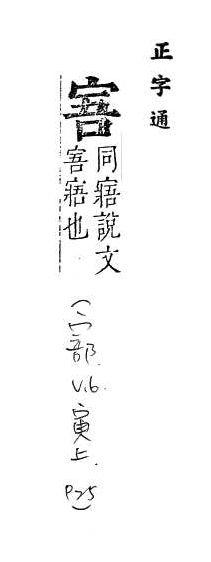 正字通
同寤說文
寤也
(宀部. V.6. 寅上. P25)